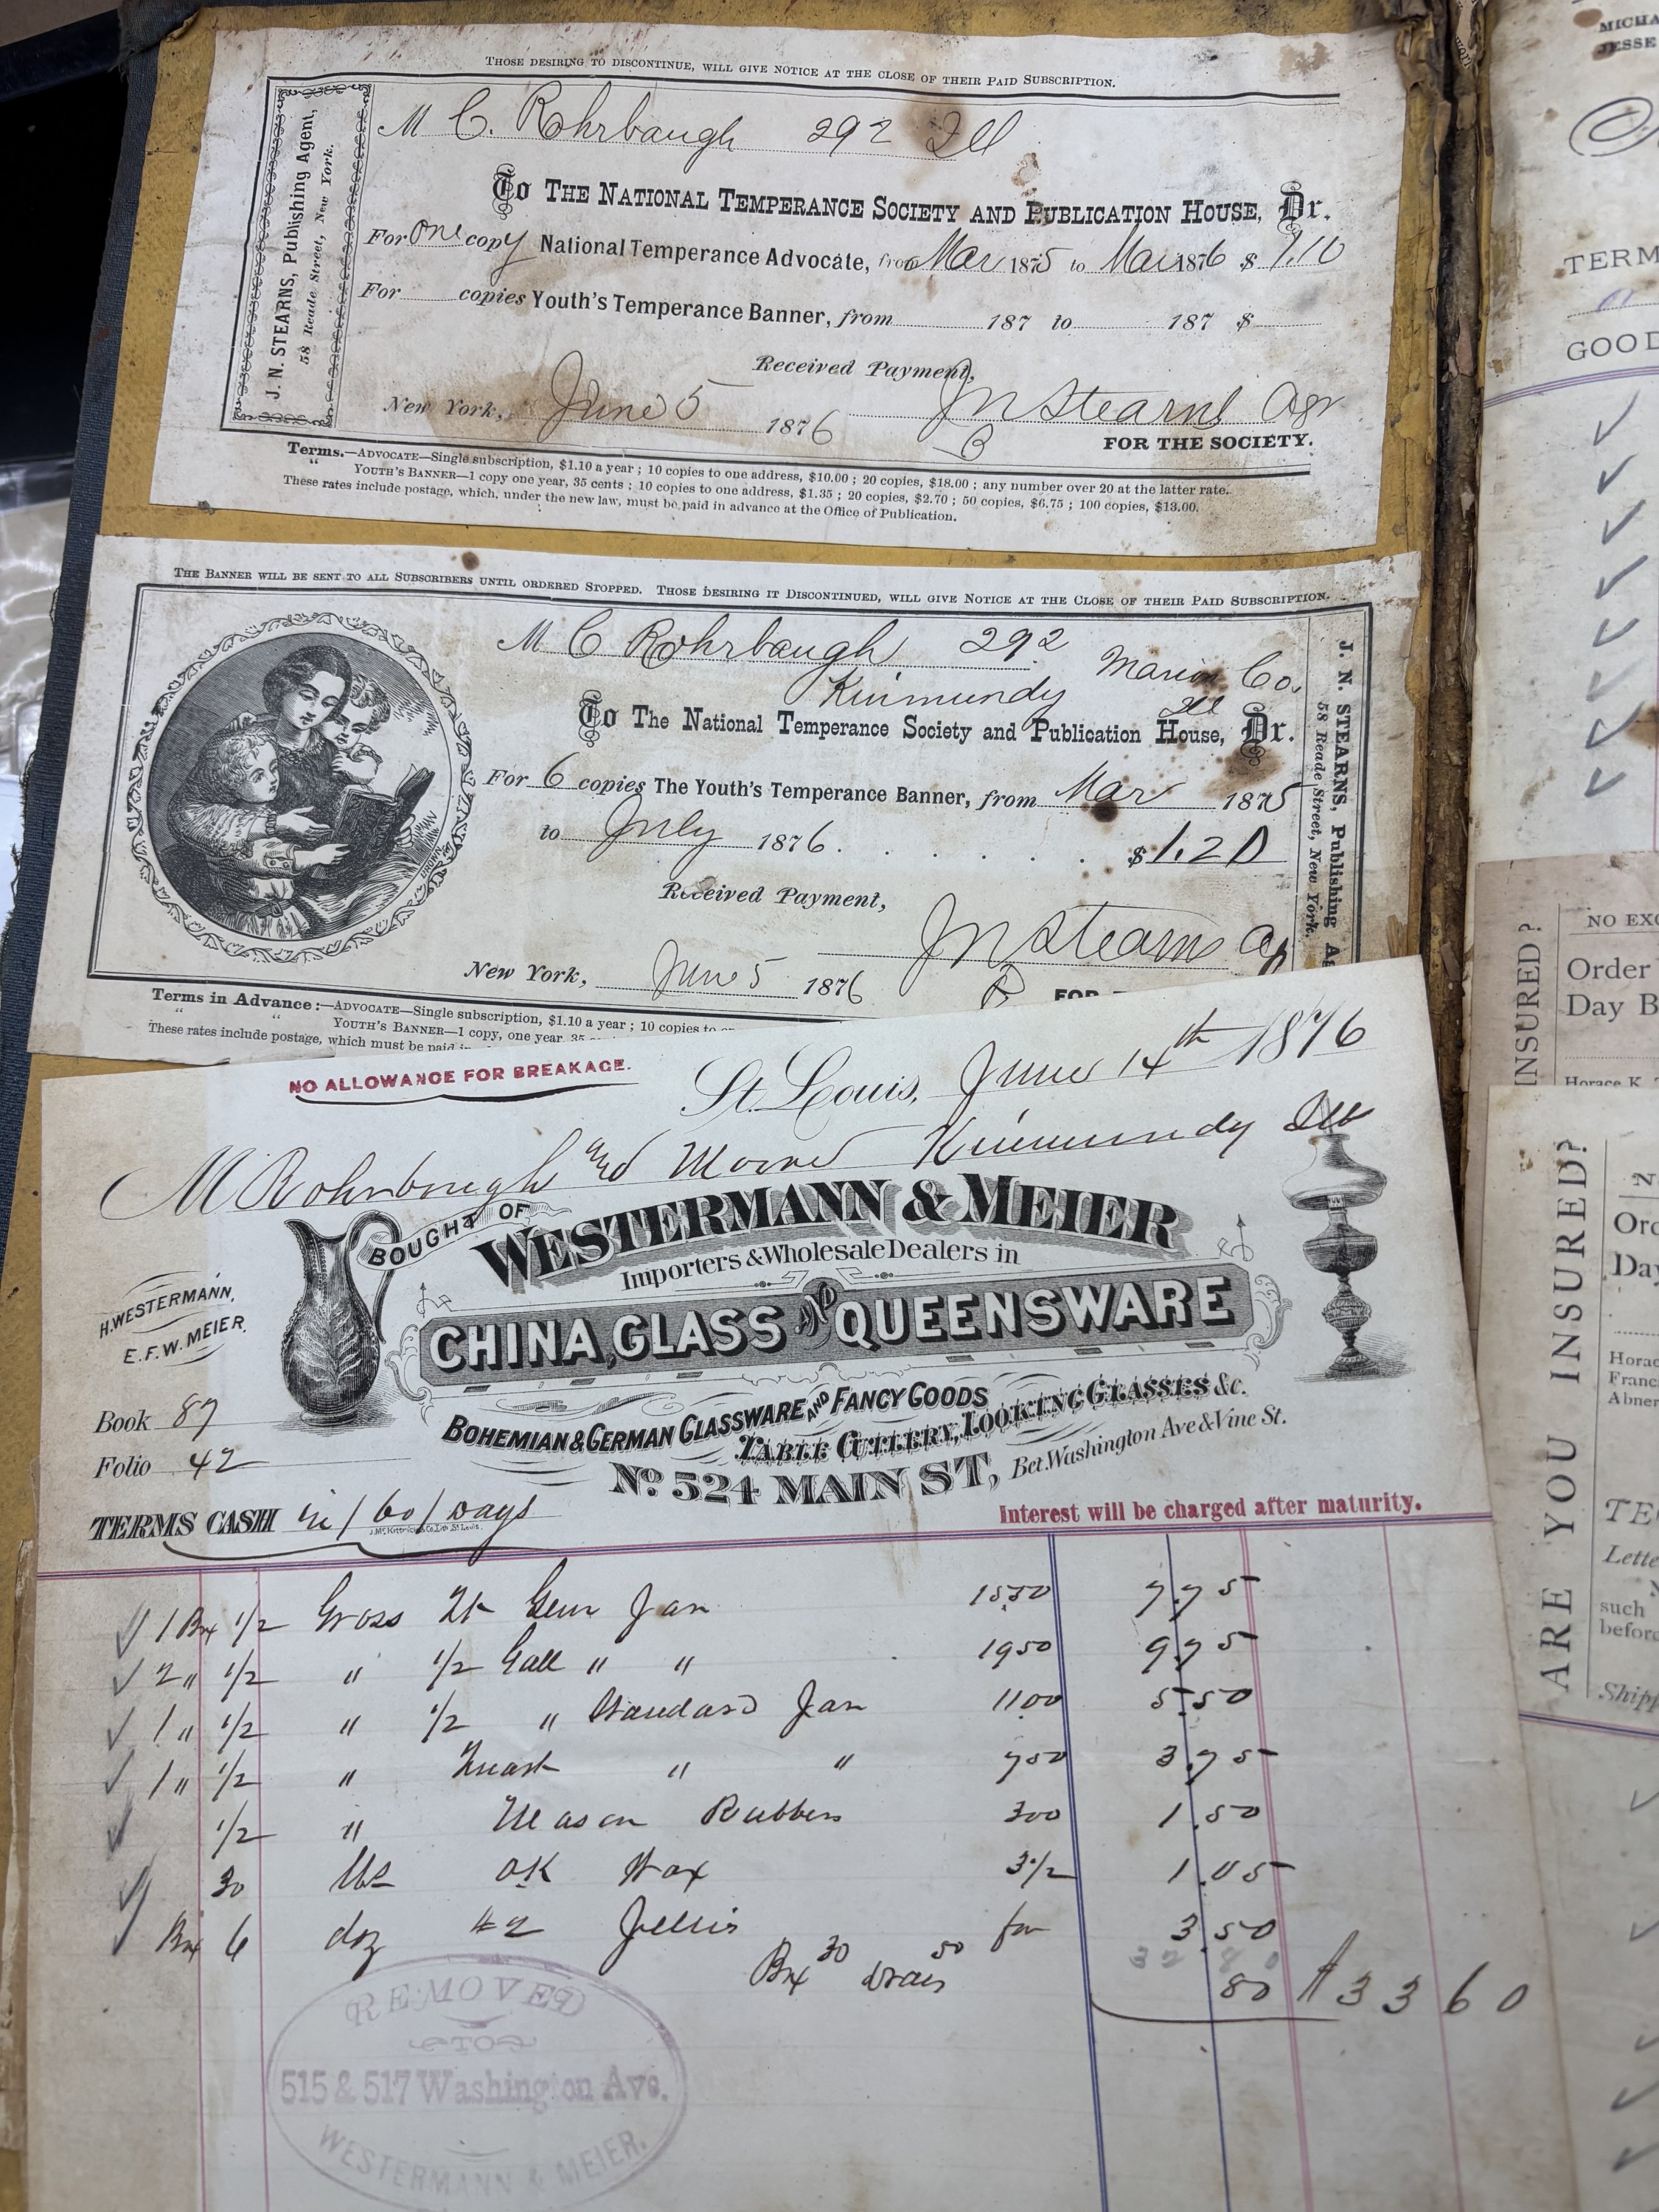 THOSE DESIRING TO DISCONTINUE, WILL GIVE NOTICE AT THE CLOSE OF THEIR PAID SUBSCRIPTION.
J. N. STEARNS, Publishing Agent,
58 Reade Street, New York.
M C. Rohrbaugh 292 Ill
To THE NATIONAL TEMPERANCE SOCIETY AND PUBLICATION HOUSE, Dr.
For One copy National Temperance Advocate, from Mar 1875 to Mar 1876 $ 1.10
For copies Youth's Temperance Banner, from 187 to 187 $
Received Payment,
New York, June 5 1876 JN Stearns Agt
B FOR THE SOCIETY.
Terms.—ADVOCATE—Single subscription, $1.10 a year ; 10 copies to one address, $10.00 ; 20 copies, $18.00 ; any number over 20 at the latter rate.
" YOUTH'S BANNER—1 copy one year, 35 cents ; 10 copies to one address, $1.35 ; 20 copies, $2.70 ; 50 copies, $6.75 ; 100 copies, $13.00.
These rates include postage, which, under the new law, must be paid in advance at the Office of Publication.
THE BANNER WILL BE SENT TO ALL SUBSCRIBERS UNTIL ORDERED STOPPED. THOSE DESIRING IT DISCONTINUED, WILL GIVE NOTICE AT THE CLOSE OF THEIR PAID SUBSCRIPTION.
M C Rohrbaugh 292 Marion Co.
Kinmundy Ill
To THE NATIONAL TEMPERANCE SOCIETY AND PUBLICATION HOUSE, Dr.
For 6 copies The Youth's Temperance Banner, from Mar 1875
to July 1876 . . . . . . . $1.20
Received Payment,
JN Stearns Ag
New York, June 5 1876 B FOR
J. N. STEARNS, Publishing Ag
58 Reade Street, New York.
Terms in Advance :—ADVOCATE—Single subscription, $1.10 a year ; 10 copies to
" YOUTH'S BANNER—1 copy, one year, 35
These rates include postage, which must be paid in
NO ALLOWANCE FOR BREAKAGE.
St. Louis, June 14th 1876
M Rohrbough and Kinmundy Ill
BOUGHT OF
WESTERMANN & MEIER
Importers & Wholesale Dealers in
CHINA, GLASS AND QUEENSWARE
H. WESTERMANN,
E. F. W. MEIER.
BOHEMIAN & GERMAN GLASSWARE AND FANCY GOODS
TABLE CUTLERY, LOOKING GLASSES &c.
No. 524 MAIN ST, Bet. Washington Ave & Vine St.
Book 87
Folio 42
TERMS CASH in / 60 / Days
Interest will be charged after maturity.
1 Bx 1/2 Gross Qt Gem Jar 15.50 7.75
2 " 1/2 " 1/2 Gall " " 1950 9.75
1 " 1/2 " 1/2 " Standard Jar 1100 5.50
1 " 1/2 " Quart " " 750 3.75
1/2 " Mason Rubbers 300 1.50
30 lbs OK Wax 3 1/2 1.05
Bx 6 doz #2 Jellis for 3.50
32 80
Bx 30 Dray 50 80 $33 60
REMOVED
TO
515 & 517 Washington Ave.
WESTERMANN & MEIER.
MICHA
JESSE
TERM
GOOD
INSURED?
NO EXC
Order
Day B
Horace K.
ARE YOU INSURED?
Ord
Day
Horac
Franc
Abner
TE
Lette
such
before
Shipp